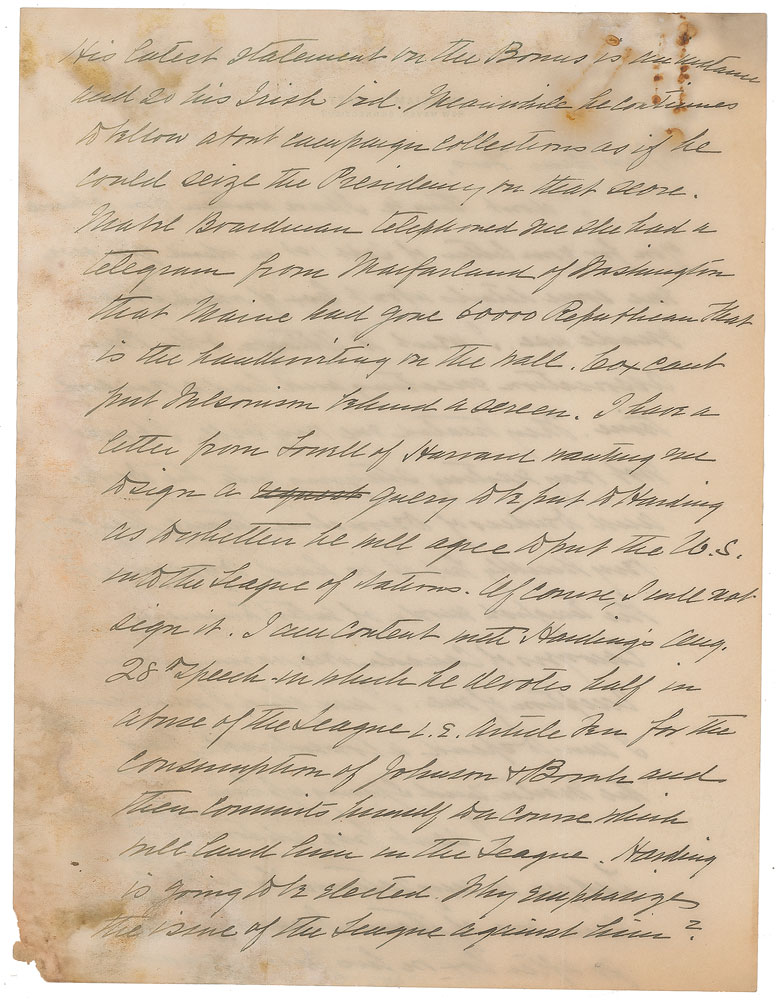 His latest statement on the Bonus is an instance
and so his Irish bid. Meanwhile he continues
to blow about campaign collections as if he
could seize the Presidency on that score.
Mabel Boardman telephoned me she had a
telegram from Macfarland of Washington
that Maine had gone 60000 Republican that
is the handwriting on the wall. Cox cant
put Wilsonism behind a screen. I have a
letter from Lowell of Harvard wanting me
to sign a request query to be put to Harding
as to whether he will agree to put the U.S.
into the League of Nations. Of course, I will not
sign it. I am content with Harding's Aug.
28th speech in which he devotes half in
abuse of the League i.e. Article Ten for the
consumption of Johnson & Borah and
then commits himself to a course which
will land him in the League. Harding
is going to be elected. Why emphasize
the issue of the League against him?